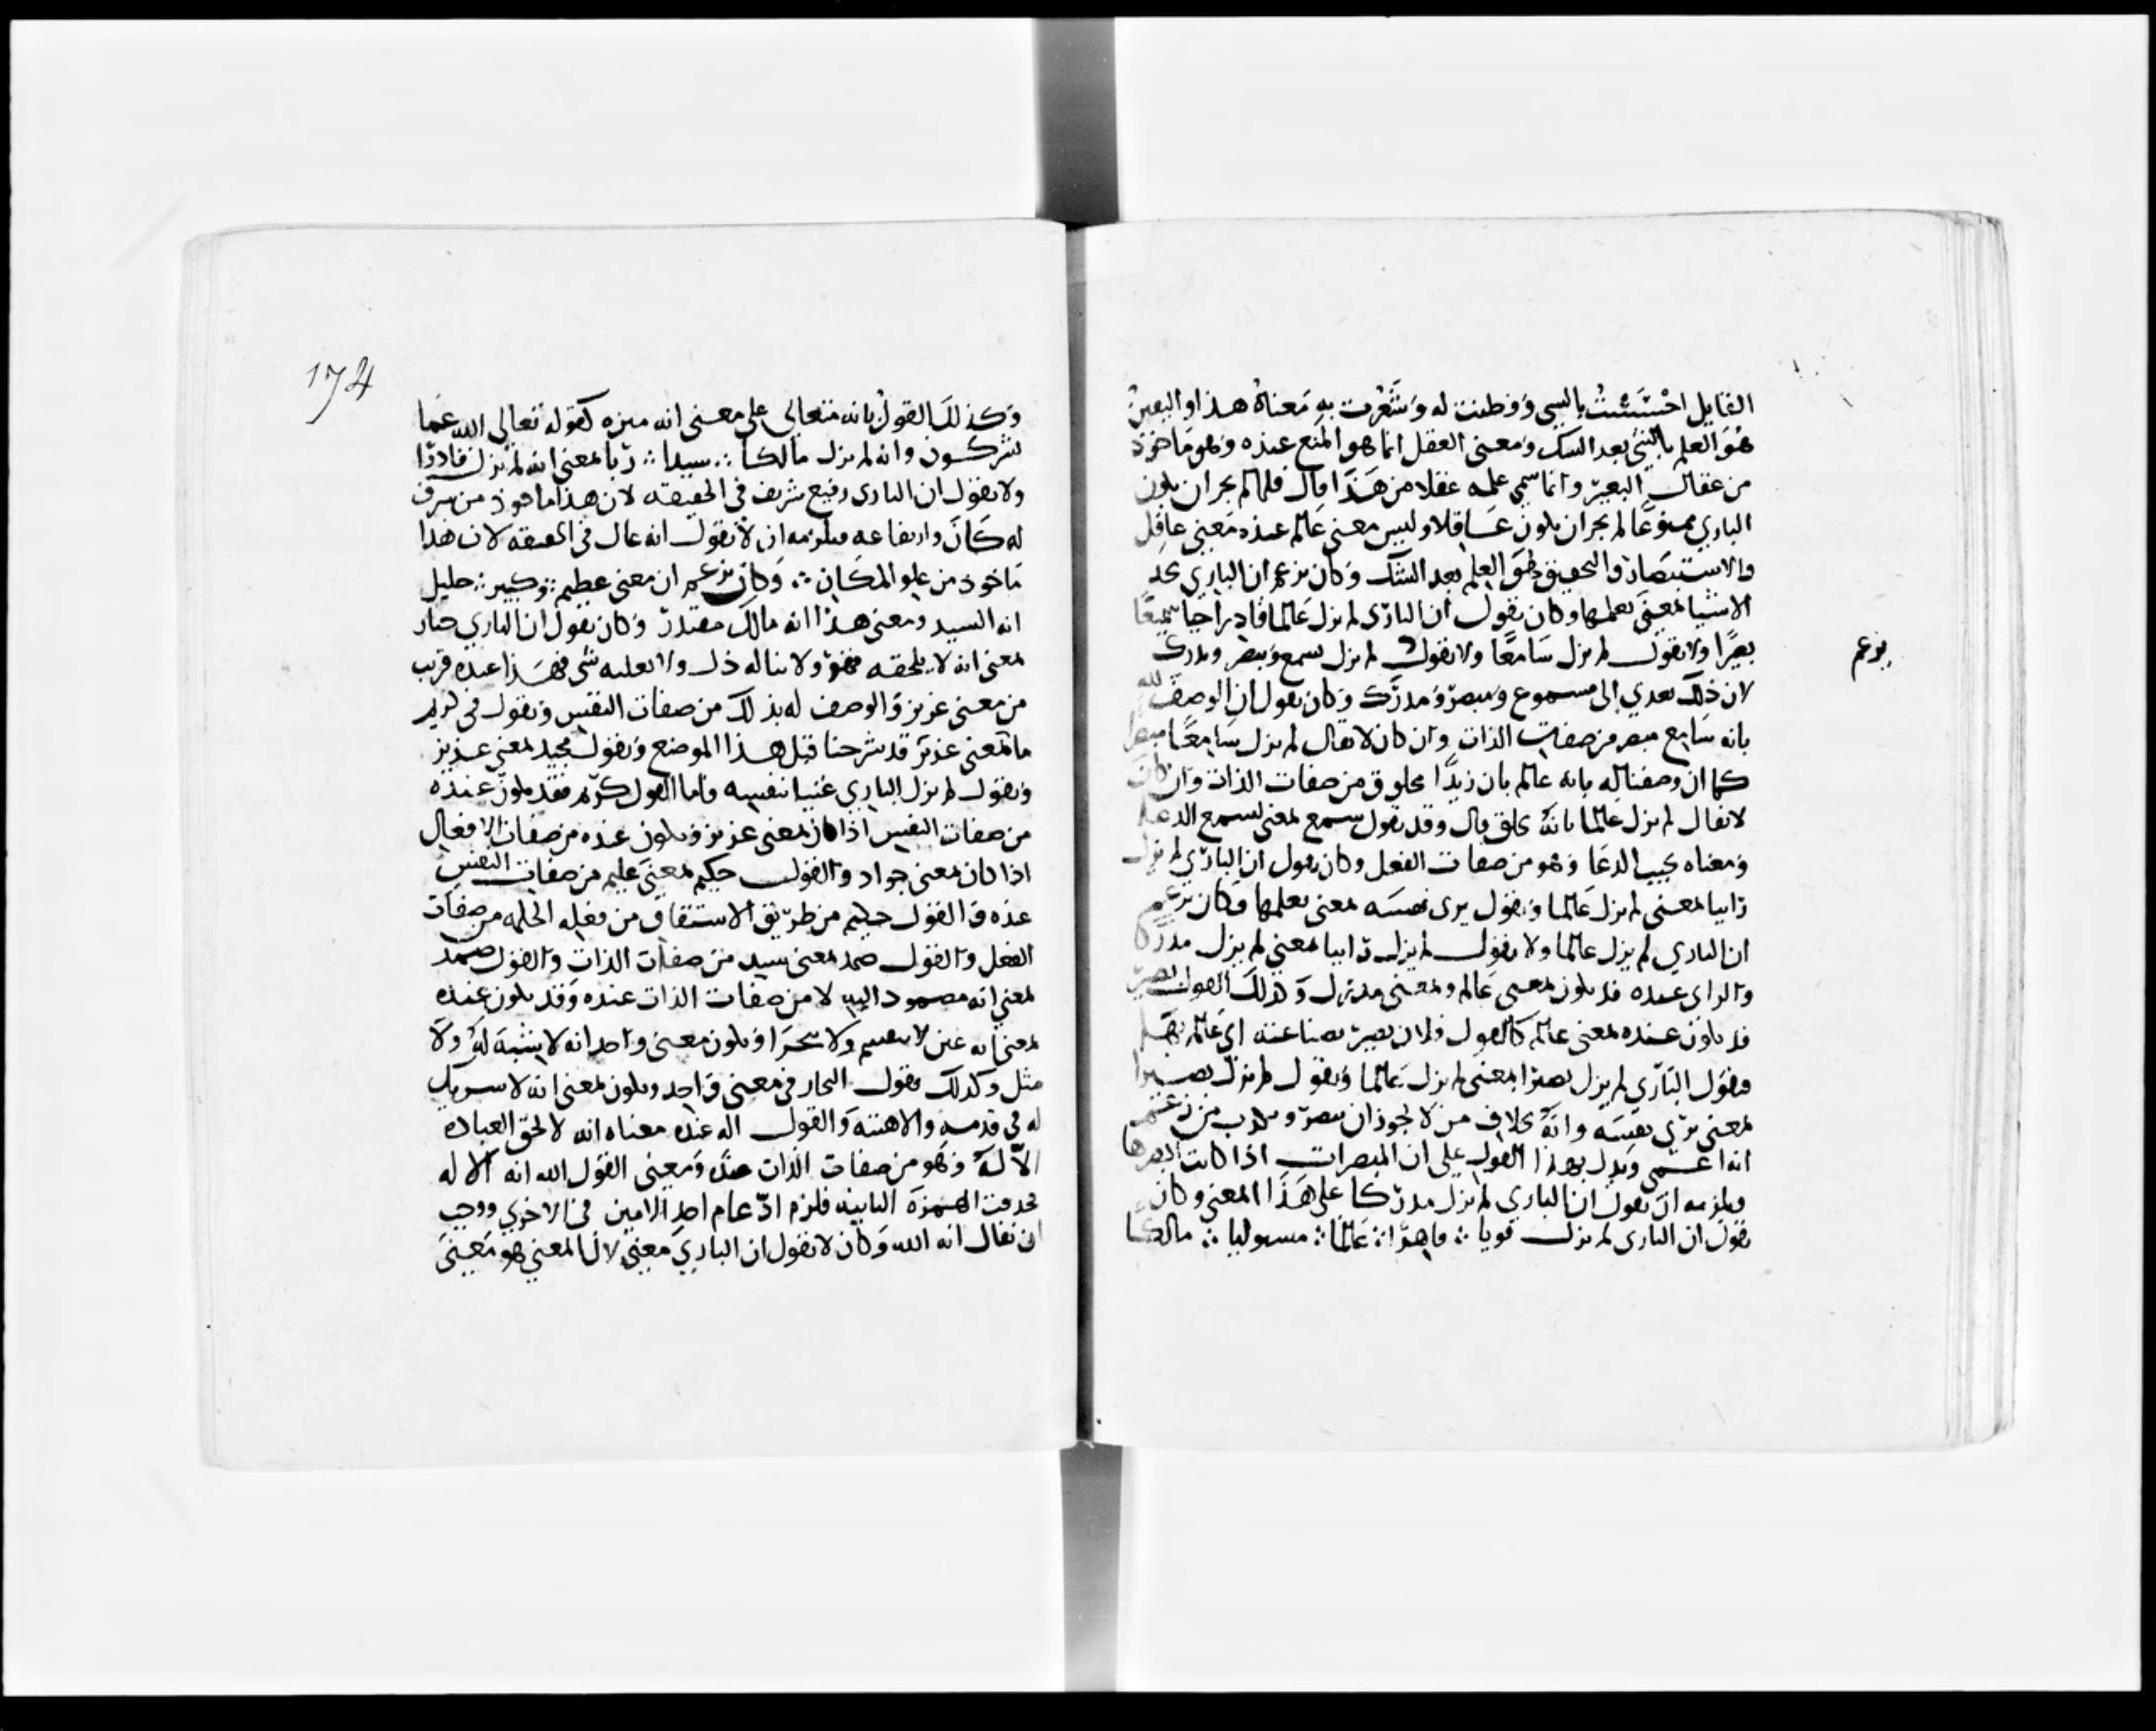 القايل احْسَسْتُ بالشي وَفطنت له وَشَعُرت بهِ مَعناهُ هذا واليَقينْ
هُوَ العلم بالشئ بعد الشك وَمعنى العقل انما هو المَنع عنده وَهو مَاخوذ
من عقال البعيرْ وانما سمي علمه عقلا من هَذا قال فلما لم يجز ان يكون
الباري ممنوعًا لم يجز ان يكون عَاقلا وليس معنى عَالم عنده مَعنى عاقِل
والاستبصار والتحقيق هُوَ العِلم بعد الشّك وَكان يزعم ان الباري يجد
الاشيا بمعنَى يعلمها وكان يَقول ان البارى لم يزل عَالما قادِراً حيا سَميعًا
بصيرًا ولا يقول لم يزل سَامعًا ولا يقول لم يزل يسمع وَيبصر ويدرك
يزعم
لان ذلك يعدي الى مسموع وَمبصرْ وَمدرَك وَكان يقول ان الوصف لله
بانه سَامِع مبصر من صفات الذات وان كان لا يقال لم يزل سَامِعًا مبصرا
كما ان وصفنا له بانه عالم بان زيدًا مخلوق من صفات الذات وان كان
لا يقال لم يزل عَالما بانّه يخلق قال وقد يقول سميع بمعنى يسمع الدعا
وَمعناه يجيب الدعَا وَهو من صفات الفعل وكان يقول ان البارّي لم يزل
رايبا بمعنى لم يزل عَالما وَيقول يرى نفسَه بمعنى يعلمها وَكان يزعم
ان الباري لم يزل عالما ولا يقول لم يزل رايبا بمعنى لم يزل مدركا
والراى عنده قد يكون بمعنى عَالم وبمعنى مدرك وَكذلك القول بصير
قد يكون عنده بمعنى عالم كالقول فلان بصيرْ بصناعته اي عَالم بها
فيقول البَارّي لم يزل بصيرًا بمعنى لم يزل عَالما وَيقول لم يزل بصيرا
بمعنى يرَى نفسَه وانّه بخلاف من لا يجوز ان يبصر
انه اعمى وَيدل بهذا القول على ان المبصرات اذا كانت ابصرها
ويلزمه ان يقول ان الباري لم يزل مدرّكا على هَذا المعنى وكان
يقول ان البارى لم يزل قويا ∴ قاهرًا ∴ عَالمًا ∴ مسوليا ∴ مالكا
174
وَكذلكَ القولُ بانه متعالي على معنى انه منزه كقوله تعالى الله عَما
يشركون وانه لم يزل مالكا ∴ سيدا ∴ رّبا بمعنى انه لم يزل قادرًا
ولا يقول ان البارى رفيع شريف في الحقيقه لان هذا ماخوذ من شرف
المكَان وارتفاعه فيلزمه ان لا يَقول انه عال في الحقيقه لان هذا
مَاخوذ من علو المكَان ∴ وَكان يزعم ان معنى عظيم ∴ وَكبير ∴ جليل
انه السيد ومعنى هذا انه مالك مقتدرْ وَكان يقول ان الباري جبار
بمعنى انه لا يلحقه قهر ولا يناله ذل ولا يغلبه شى فهَذا عنده قريب
من معنى عزيز وَالوصف له بذلك من صفات النفس وَيقول في كريم
ما بمعنى عزيز قد شرحنا قبل هذا الموضع وَيقول مجيد بمعنى عزيز
وَيقول لم يزل الباري غنيا بنفسه فاما القول كرّيم فقد يكون عنده
من صفات النفس اذا كان بمعنى عزيز وَيكون عنده من صفات الافعال
اذا كان بمعنى جواد وَالقول حكيم بمعنَى عليم من صفات النفس
عنده وَالقول حكيم من طرّيق الاشتقاق من فعله الحكمه من صفات
الفعل وَالقول صمد بمعنى سيد من صفات الذات وَالقول صمد
بمعنى انه مصمود اليه لا من صفات الذات عنده وَقد يكون عنده
بمعنى انه عين لا ينقسم ولا يتجزا وَيكون معنى واحد انه لا شبَه له وَلا
مثل وكذلك يقول النجار في معنى وَاحد ويكون بمعنى انه لا شريك
له في قدمه والاهيته وَالقول اله عنده معناه انه لا تحق العبادة
الاّ له وَهو من صفات الذات عنده وَمعنى القول الله انه الاله
فحذفت الهمزة الثانيه فلزم ادّغام احد اللامين في الاخرى ووجب
ان يقال انه الله وَكان لا يقول ان البارِيَ معنىً لان المعني هو مَعنَى